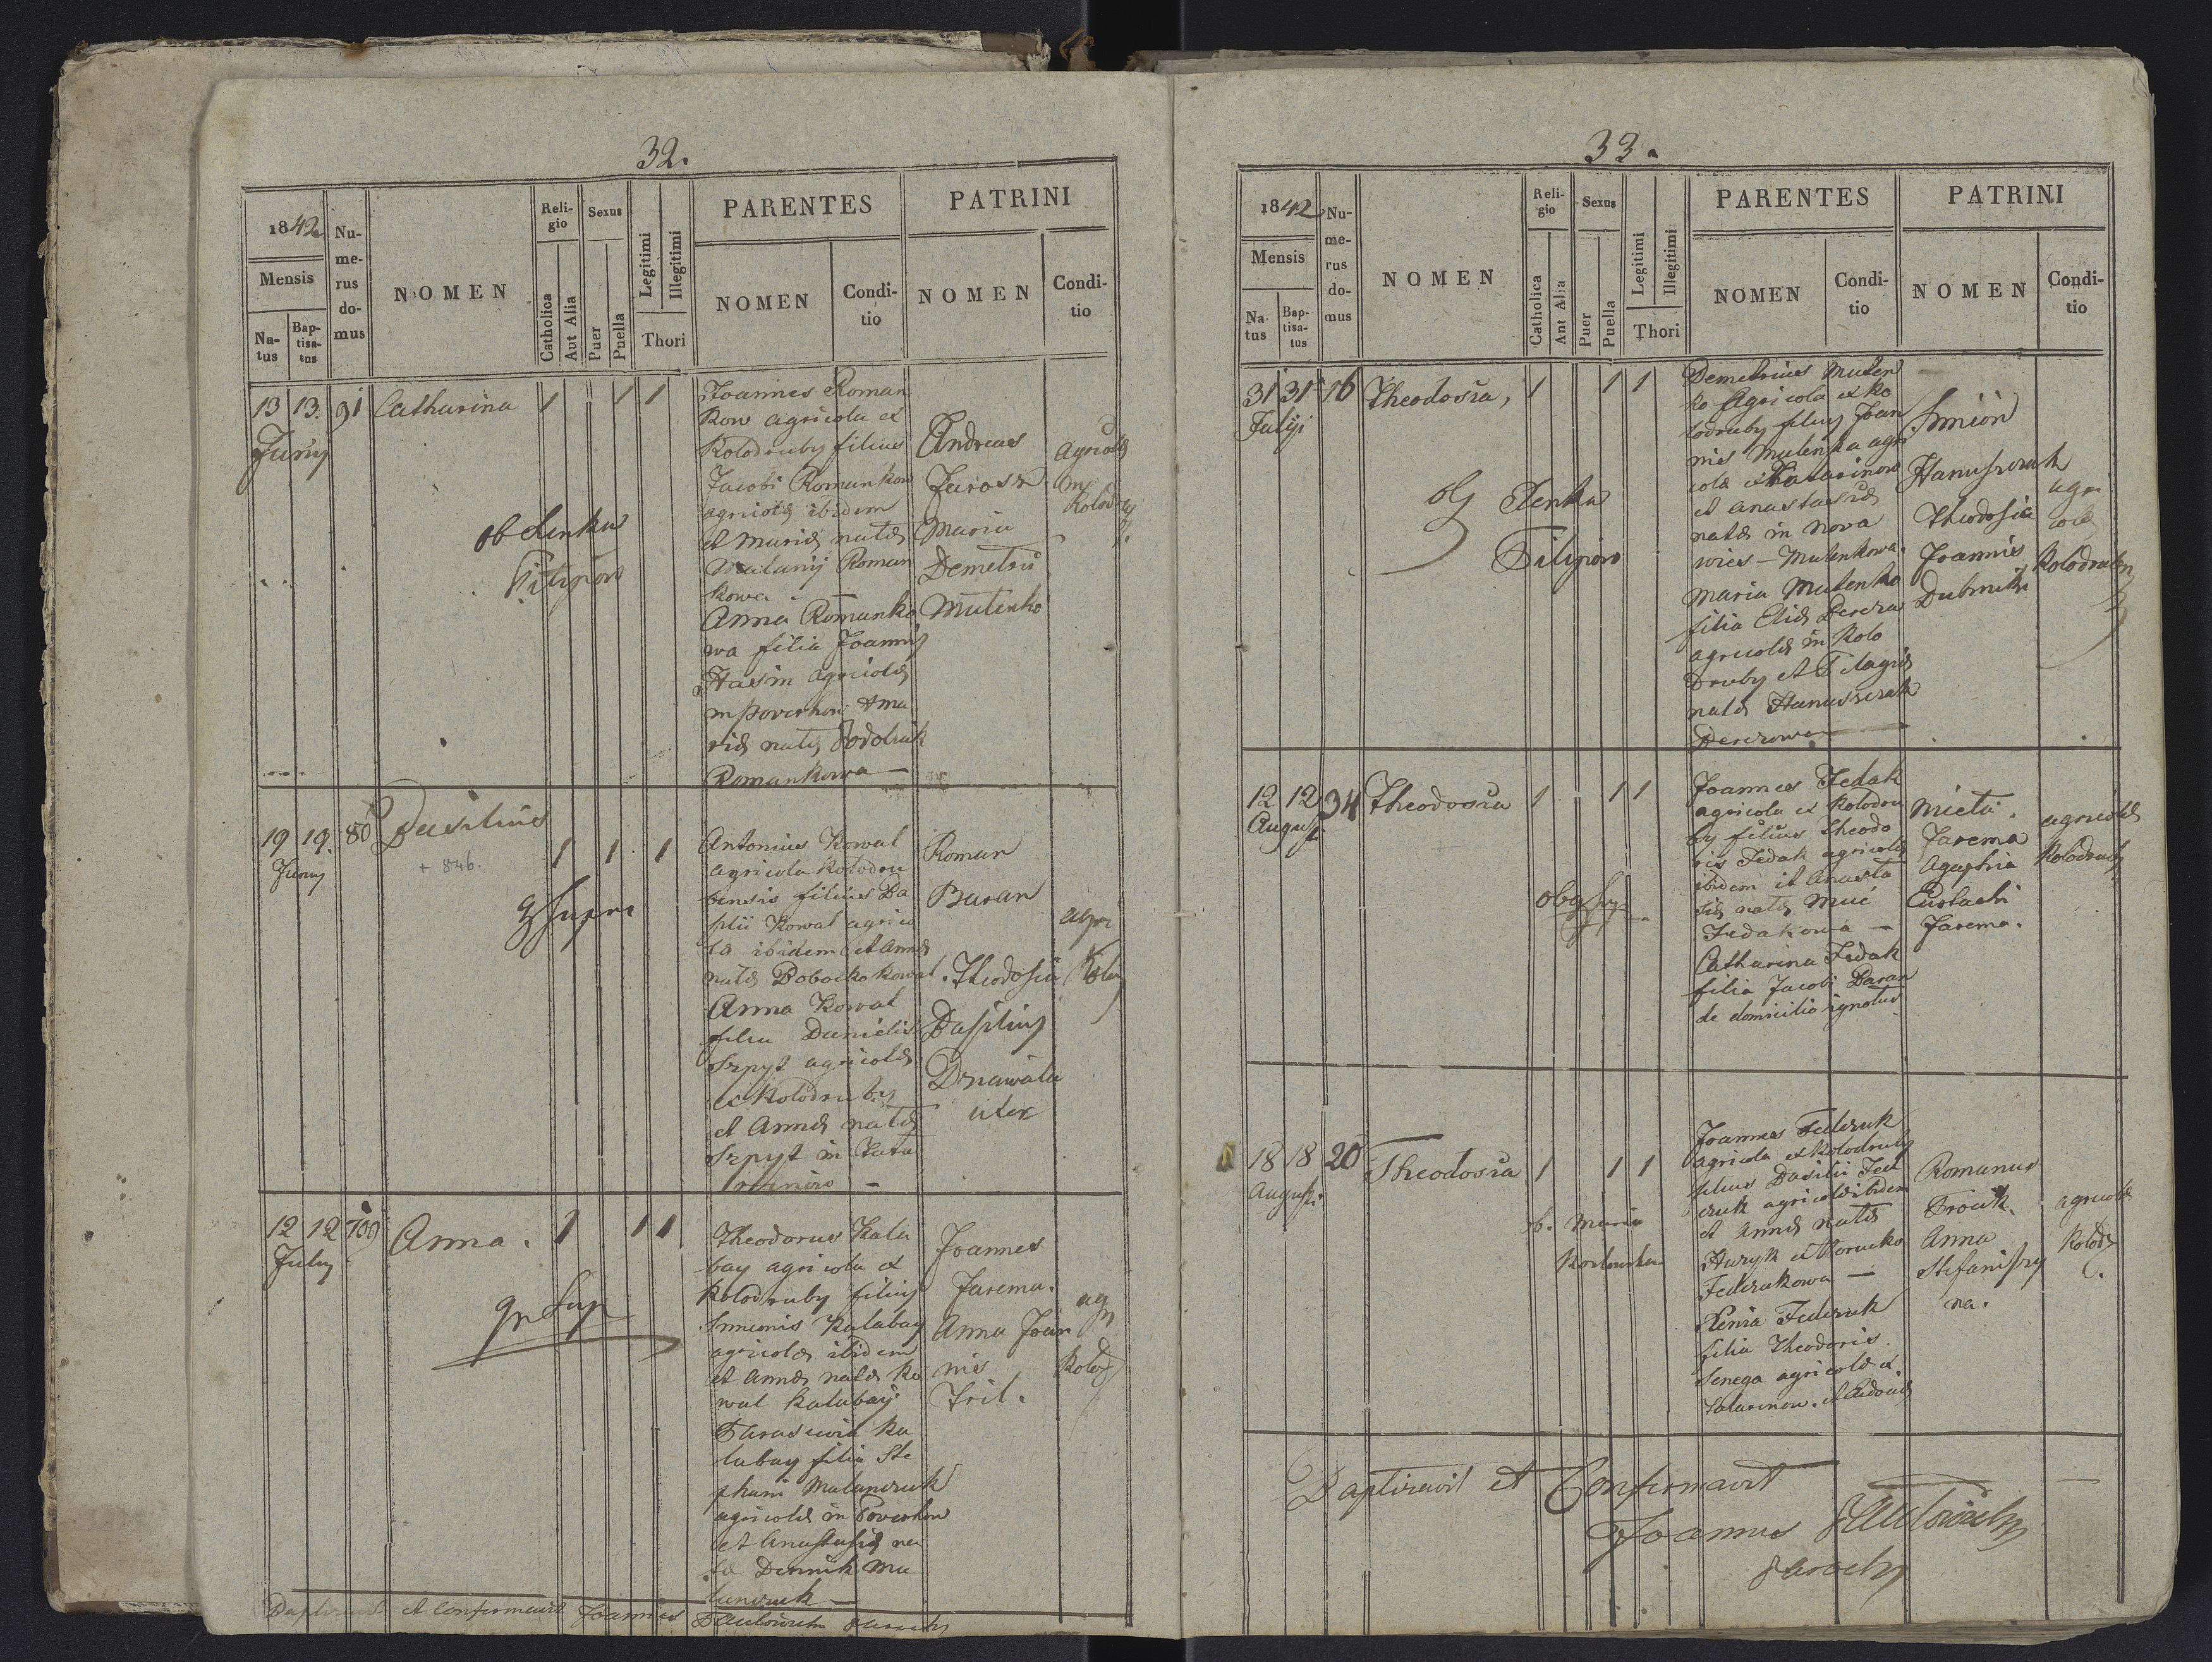 32.
1842
Mensis
Na-
tus
Bap-
tisa-
tus
Nu-
me-
rus
do-
mus
NOMEN
Reli-
gio
Catholica
Aut Alia
Sexus
Puer
Puella
Legitimi
Illegitimi
Thori
PARENTES
NOMEN
Condi-
tio
PATRINI
NOMEN
Condi-
tio
13 13. 91 Catharina 1 1 1
Juny
ob. Lenka
Filipow
Joannes Roman
kow agricola ex
Kolodruby filius
Jacobi Romankow
agricolæ ibidem
et Mariæ natæ
Roman
kowa
Anna Romanko
wa filia Joannis
Hasin agricolæ
in Poverhow et Ma
riæ natæ Podolcuk
Romankowa —
Andreas
Jarosz
Maria
Demetrii
Mulenko
agricolæ
in
Kolodruby
19 19. 80 Basilius 1 1 1
Juny
+ 846.
q Supra
Antonius Kowal
agricola Kolodru
bensis filius Ba
silii Kowal agrico
la ibidem et Annæ
natæ Bobocko Kowal
Anna Kowal
filia Danielis
Szpyt agricolæ
ex Kolodruby
et Annæ natæ
Szpyt in Tata
rinow —
Roman
Baran
Theodosia
Basilius
Drawala
uxor
agri
Kolod
12 12 109 Anna. 1 1 1
July
qu Sup
Theodorus Kala
bay agricola ex
Kolodruby filius
Simeonis Kalabay
agricolæ ibidem
et Annæ natæ Ko
wal Kalabay
Parascevia Ka
labay filia Ste
phani Malanczuk
agricolæ in Poverhow
et Anastasiæ na
ta Dennik Ma
lanczuk —
Joannes
Jarema.
Anna Joan
nis
Tril.
ag
Kolod
Baptisavit et Confirmavit Joannes Pawlowich Parochus
33.
1842
Mensis
Na-
tus
Bap-
tisa-
tus
Nu-
me-
rus
do-
mus
NOMEN
Reli-
gio
Catholica
Aut Alia
Sexus
Puer
Puella
Legitimi
Illegitimi
Thori
PARENTES
NOMEN
Condi-
tio
PATRINI
NOMEN
Condi-
tio
31 31 16 Theodosia, 1 1 1
Julyi
ob Lenka
Filipow
Demetrius Mulen
ko Agricola ex Ko
lodruby filius Joan
nis Mulenka agri
colæ ex Tatarinow
et Anastasiæ
natæ in Nova
wies — Mulenkowa.
Maria Mulenko
filia Eliæ Derczao
agricolæ in Kolo
druby et Pelagiæ
natæ Hanuszczak
Derczowa —
Simeon
Hanuszczak
Theodosia
Joannis
Dubnicki
agri
colæ
Kolodruby
12 12 34 Theodosia 1 1 1
August.
ob q Sup
Joannes Fedak
agricola ex Kolodru
by filius Theodo
ris Fedak agricolæ
ibidem et Anasta
siæ natæ Muć
Fedakowa —
Catharina Fedak
filia Jacobi Baran
de domicilio ignotus
Mieta.
Jarema
Agaphia
Eustachi
Jarema.
agricolæ
Kolodruby
18 18 20 Theodosia 1 1 1
August.
b. Maria
Joannes Federuk
agricola ex Kolodruby
filius Basilii Fed
eruk agricolæ ibidem
et Annæ natæ
Huryk
Federukowa —
Xenia Federuk
filia Theodoris
Senega agricolæ ex
Tatarinow. et Eudociæ
Romanus
Procik.
Anna
Stefaniszy
na.
agricolæ
Kolod
Baptisavit et Confirmavit
Joannes Pawlowich
Parochus